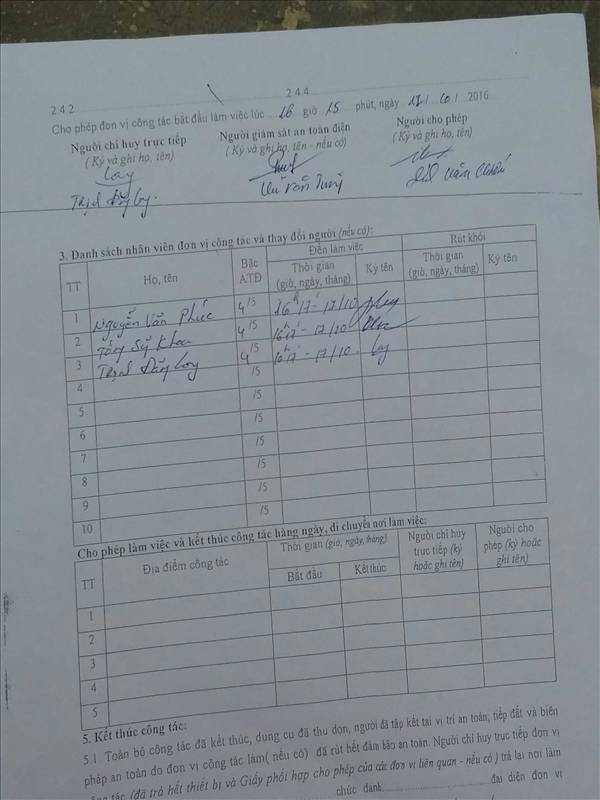 2.4.2 2.4.4
Cho phép đơn vị công tác bắt đầu làm việc lúc 16 giờ 15 phút, ngày 17/10/2016
Người chỉ huy trực tiếp Người giám sát an toàn điện Người cho phép
( Ký và ghi họ, tên) ( Ký và ghi họ, tên - nếu có) ( Ký và ghi họ, tên)
3. Danh sách nhân viên đơn vị công tác và thay đổi người (nếu có):
TT Họ, tên Bậc ATĐ Đến làm việc Rút khỏi
Thời gian (giờ, ngày, tháng) Ký tên Thời gian (giờ, ngày, tháng) Ký tên
1 Nguyễn Văn Phúc 4/5 16h17' - 17/10
2 Tống Sỹ Khoa 4/5 16h17' - 17/10
3 Trịnh Đăng 4/5 16h17' - 17/10
4 /5
5 /5
6 /5
7 /5
8 /5
9 /5
10 /5
Cho phép làm việc và kết thúc công tác hàng ngày, di chuyển nơi làm việc:
TT Địa điểm công tác Thời gian (giờ, ngày, tháng) Người chỉ huy trực tiếp (ký hoặc ghi tên) Người cho phép (ký hoặc ghi tên)
Bắt đầu Kết thúc
1
2
3
4
5
5. Kết thúc công tác:
5.1 Toàn bộ công tác đã kết thúc, dụng cụ đã thu dọn, người đã tập kết tại vị trí an toàn; tiếp đất và biên
pháp an toàn do đơn vị công tác làm( nếu có) đã rút hết đảm bảo an toàn. Người chỉ huy trực tiếp đơn vị
công tác (đã trả hết thiết bị và Giấy phối hợp cho phép của các đơn vị liên quan - nếu có ) trả lại nơi làm
chức danh đại diện đơn vị